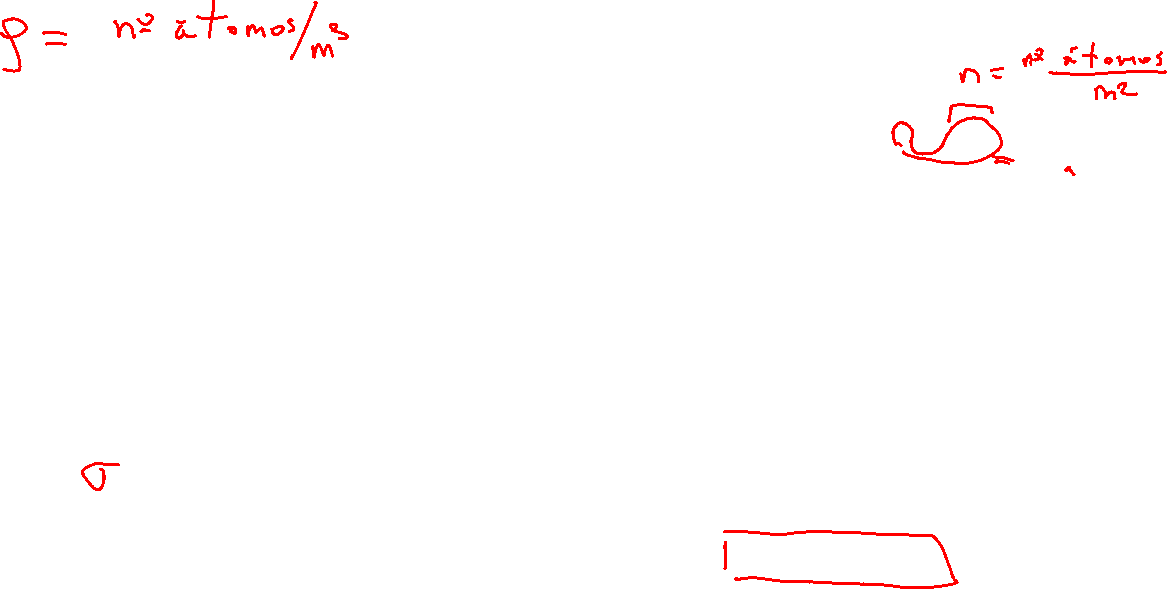 ρ = nº átomos/m³
n = nº átomos / m²
σ